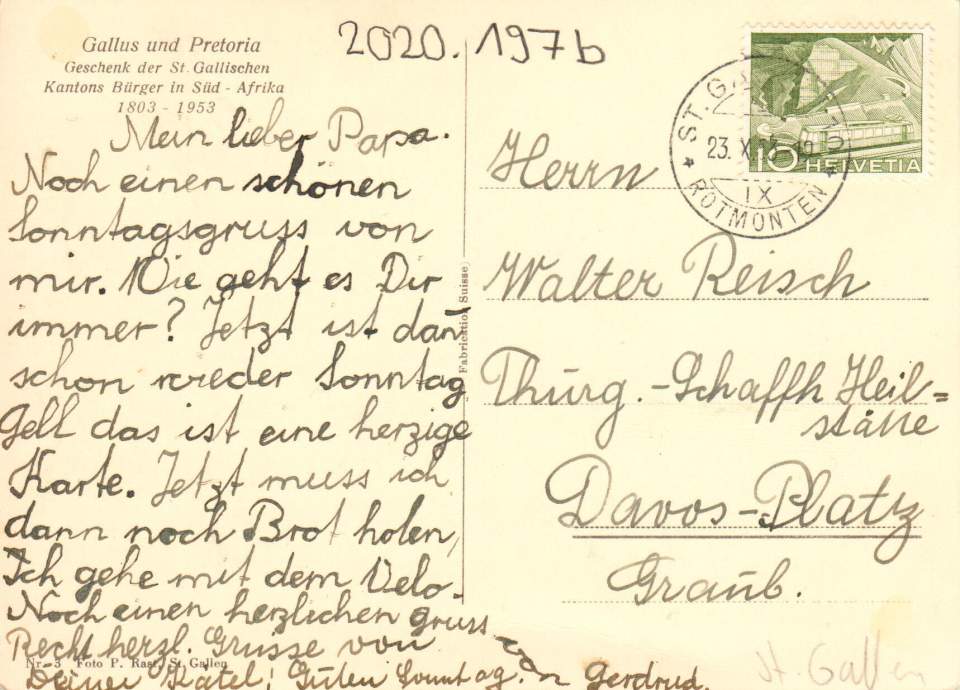 Gallus und Pretoria
Geschenk der St. Gallischen
Kantons Bürger in Süd - Afrika
1803 - 1953
2020. 197b
Mein lieber Papa.
Noch einen schönen
Sonntagsgruss von
mir. Wie geht es Dir
immer? Jetzt ist dann
schon wieder Sonntag
Gell das ist eine herzige
Karte. Jetzt muss ich
dann noch Brot holen,
Ich gehe mit dem Velo.
Noch einen herzlichen gruss
von Gertrud.
Recht herzl. Grüsse von
Deiner Guten Sonntag.
Nr. 3 Foto P. Rast, St. Gallen
Fabrication Suisse
ST. G
23. X
IX
ROTMONTEN
10 HELVETIA
Herrn
Walter Reisch
Thurg.-Schaffh Heil=
stätte
Davos-Platz
Graub.
St. Gallen